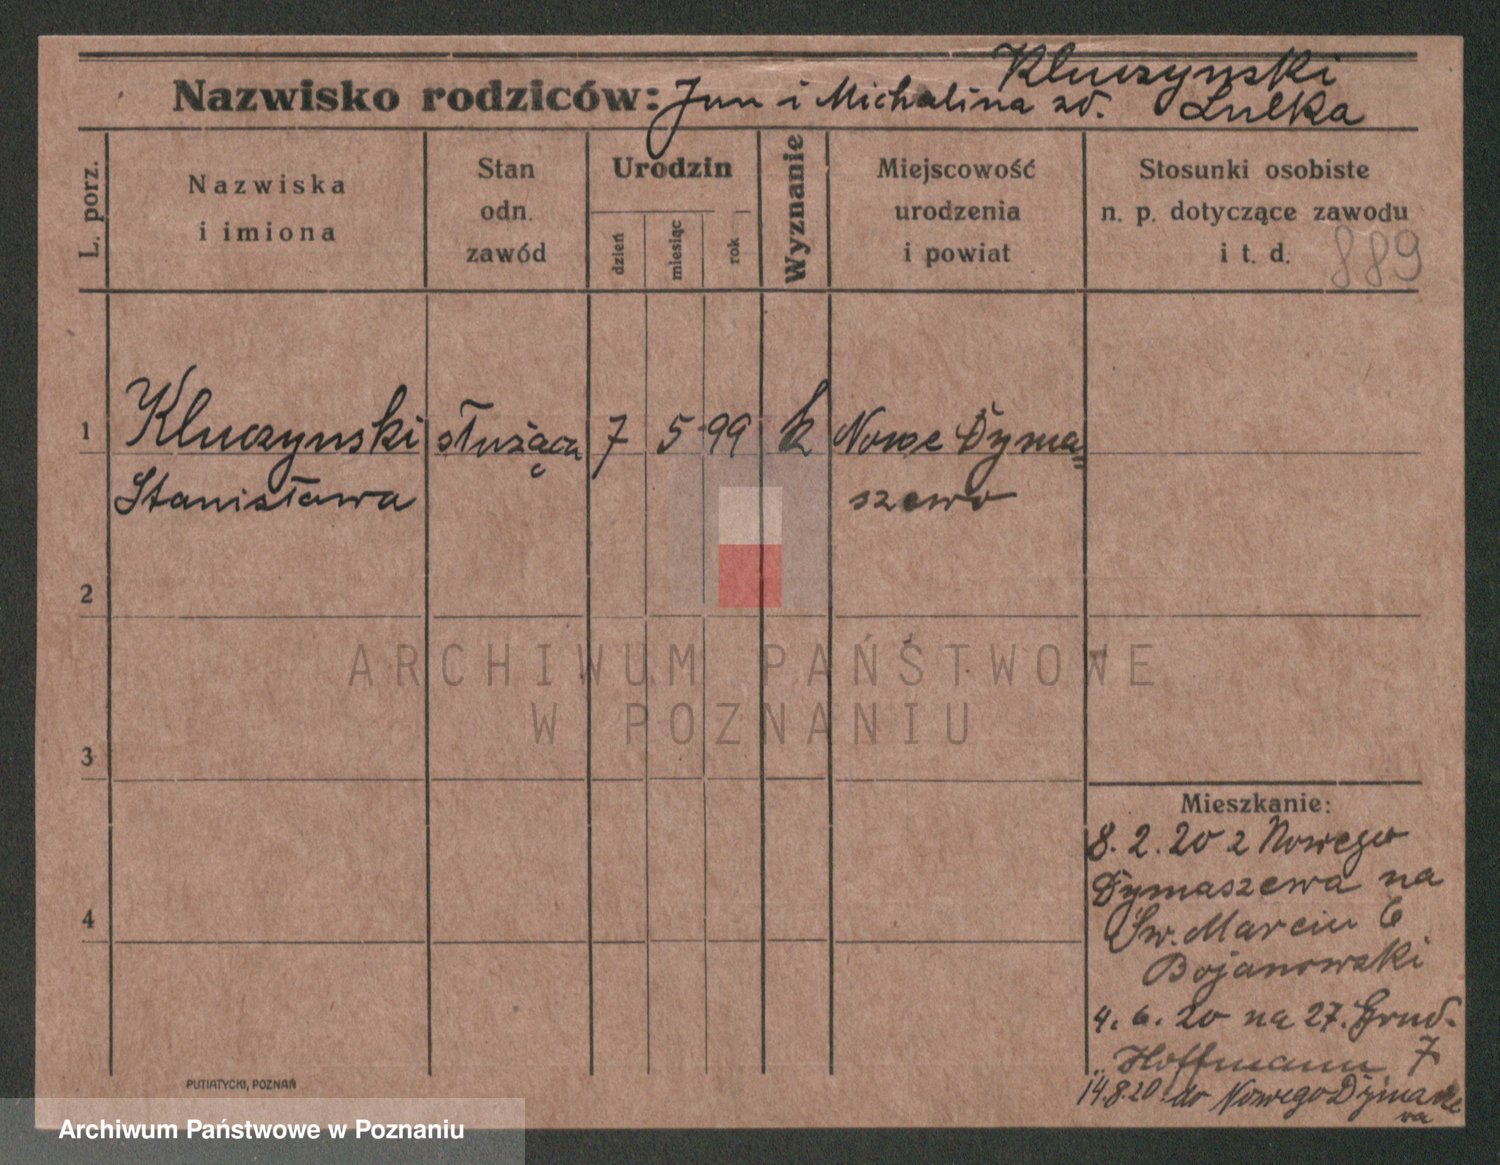 Kluczynski
Nazwisko rodziców: Jan i Michalina zd. Lulka
L. porz.
Nazwiska
i imiona
Stan
odn.
zawód
Urodzin
dzień
miesiąc
rok
Wyznanie
Miejscowość
urodzenia
i powiat
Stosunki osobiste
n. p. dotyczące zawodu
i t. d.
889
1 Kluczynski służąca 7 5 99 k Nowe Dyma=
Stanisława szewo
2
3
4
ARCHIWUM PAŃSTWOWE
W POZNANIU
Mieszkanie:
8.2.20 z Nowego
Dymaszewa na
Św. Marcin 6
Bojanowski
4.6.20 na 27. Grud.
Hoffmann 7
14.8.20 do Nowego Dymasze
wa
PUTIATYCKI, POZNAŃ
Archiwum Państwowe w Poznaniu